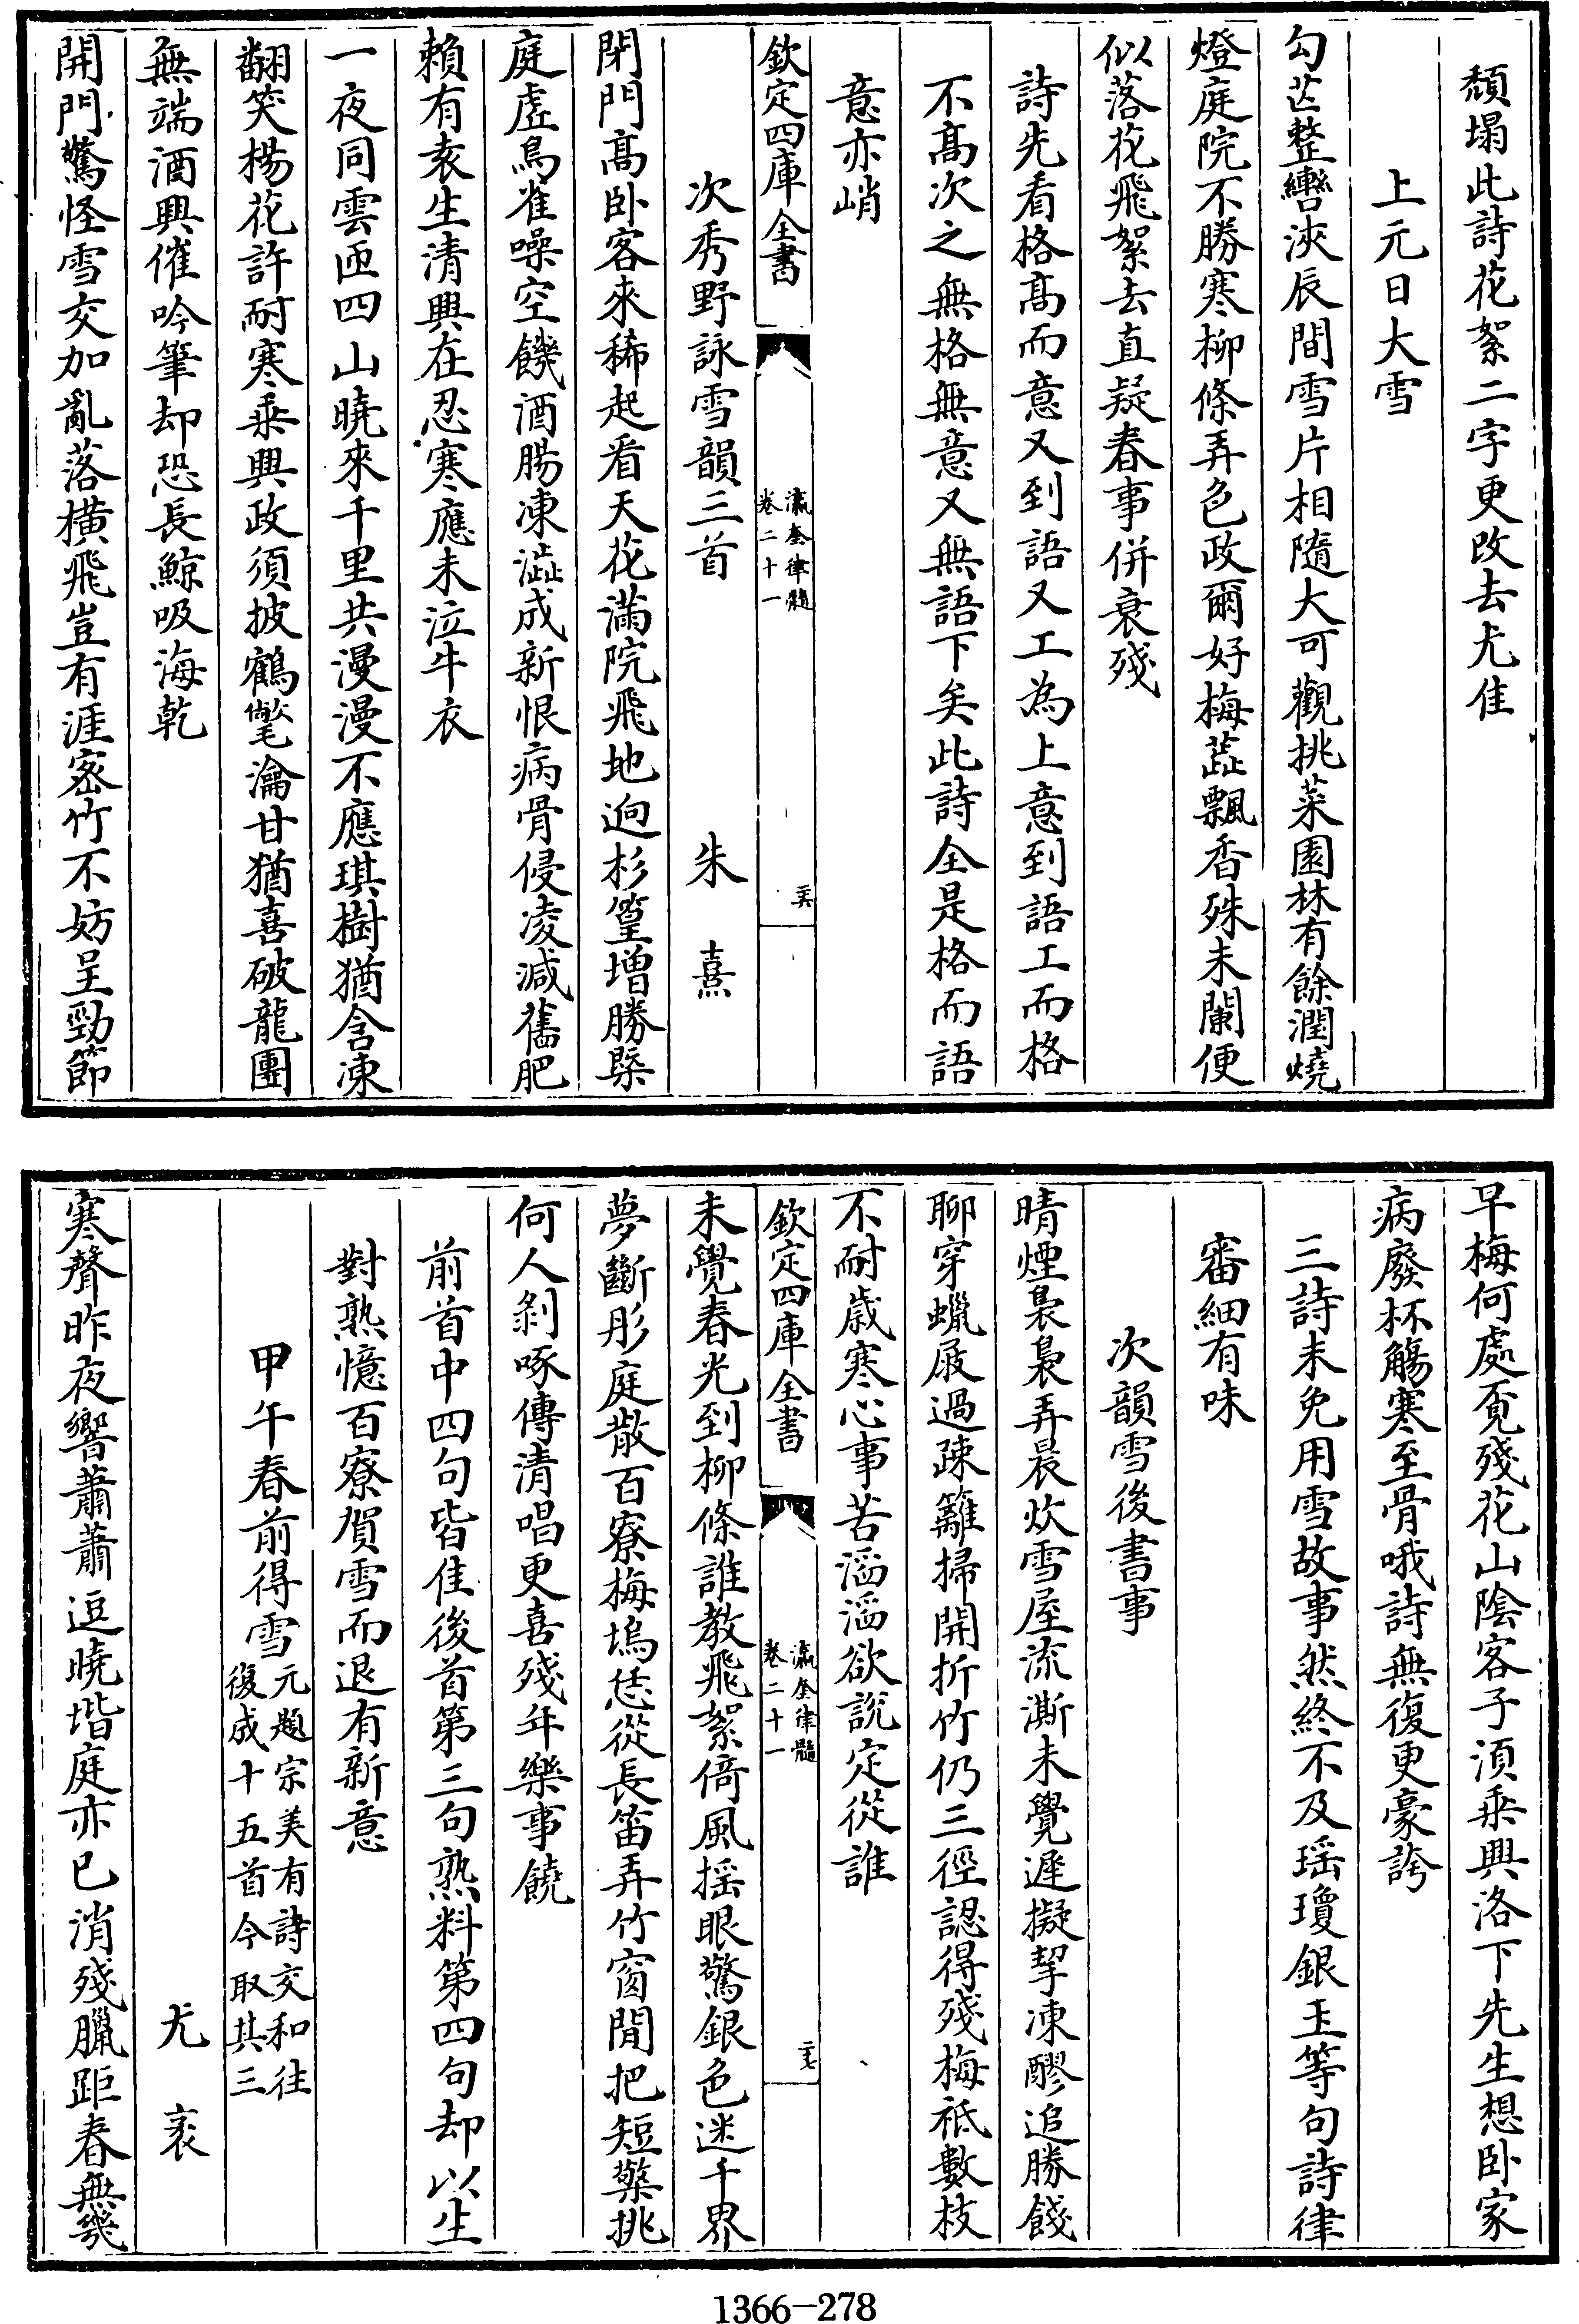 頽塌此詩花絮二字更改去尤佳
上元日大雪
勾芒整轡浹辰間雪片相隨大可觀挑菜園林有餘潤燒
燈庭院不勝寒柳條弄色政爾好梅蘂飄香殊未闌便
似落花飛絮去直疑春事併衰殘
詩先看格髙而意又到語又工為上意到語工而格
不髙次之無格無意又無語下矣此詩全是格而語
意亦峭
欽定四庫全書
瀛奎律髓
卷二十一
二十六
次秀野詠雪韻三首
朱熹
閉門髙卧客來稀起看天花滿院飛地迥杉篁增勝槩
庭虛鳥雀噪空饑酒腸凍澁成新恨病骨侵凌減舊肥
賴有袁生清興在忍寒應未泣牛衣
一夜同雲匝四山曉來千里共漫漫不應琪樹猶含凍
翻笑楊花許耐寒乘興政須披鶴氅瀹甘猶喜破龍團
無端酒興催吟筆却恐長鯨吸海乾
開門驚怪雪交加亂落橫飛豈有涯宻竹不妨呈勁節
早梅何處覔殘花山陰客子湏乘興洛下先生想卧家
病廢杯觴寒至骨哦詩無復更豪誇
三詩未免用雪故事然終不及瑶瓊銀玉等句詩律
審細有味
次韻雪後書事
晴煙裊裊弄晨炊雪屋流澌未覺遲擬挈凍醪追勝餞
聊穿蠟屐過疎籬掃開折竹仍三徑認得殘梅祇數枝
不耐歳寒心事苦滔滔欲說定從誰
欽定四庫全書
瀛奎律髓
卷二十一
二十七
未覺春光到柳條誰教飛絮倚風揺眼驚銀色迷千界
夢斷彤庭散百寮梅塢恁從長笛弄竹窗閒把短藜挑
何人剝啄傳清唱更喜殘年樂事饒
前首中四句皆佳後首第三句熟料第四句却以生
對熟憶百寮賀雪而退有新意
甲午春前得雪
元題宗美有詩交和往
復成十五首今取其三
尤袤
寒聲昨夜響蕭蕭逗曉堦庭亦已消殘臘距春無㡬
1366-278